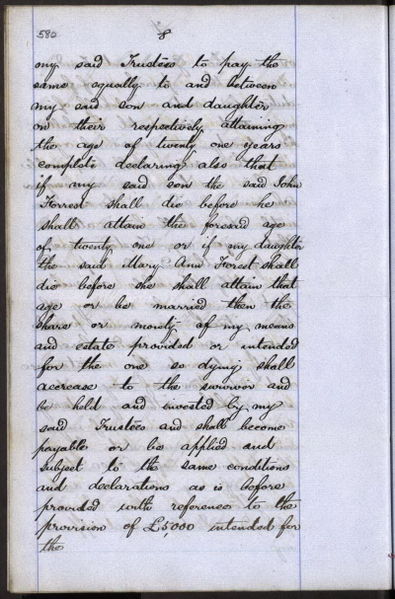 580
8
my said Trustees to pay the
same equally to and between
my said son and daughter
on their respectively attaining
the age of twenty one years
complete declaring also that
if my said son the said John
Forrest shall die before he
shall attain the foresaid age
of twenty one or if my daughter
the said Mary Ann Forest shall
die before she shall attain that
age or be married then the
share or moiety of my means
and estate provided or intended
for the one so dying shall
accrease to the survivor and
be held and invested by my
said Trustees and shall become
payable or be applied and
subject to the same conditions
and declarations as is before
provided with reference to the
provision of £5,000 intended for
the